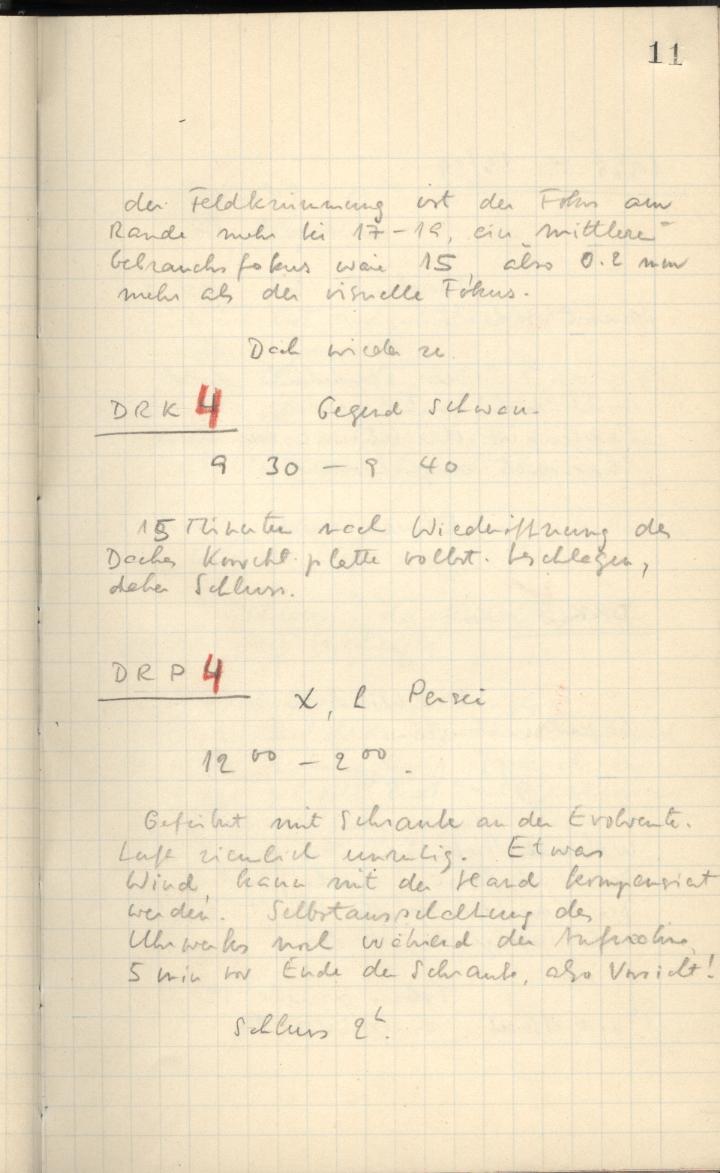 11
der Feldkrümmung ist der Fokus am
Rande mehr bei 17-19, ein mittlerer
Gebrauchsfokus wäre 15, also 0.2 mm
mehr als der visuelle Fokus.
Dach wieder zu.
DRK 4 Gegend Schwan.
9 30 - 9 40
15 Minuten nach Wiederöffnung des
Daches Korrekt.platte vollst. beschlagen,
daher Schluss.
DRP 4
χ, h Persei
12 00 - 2 00.
Geführt mit Schraube an der Evolvente.
Luft ziemlich unruhig. Etwas
Wind, kann mit der Hand kompensiert
werden. Selbstausschaltung des
Uhrwerks noch während der Aufnahme,
5 min vor Ende der Schraube, also Vorsicht!
Schluss 2h.